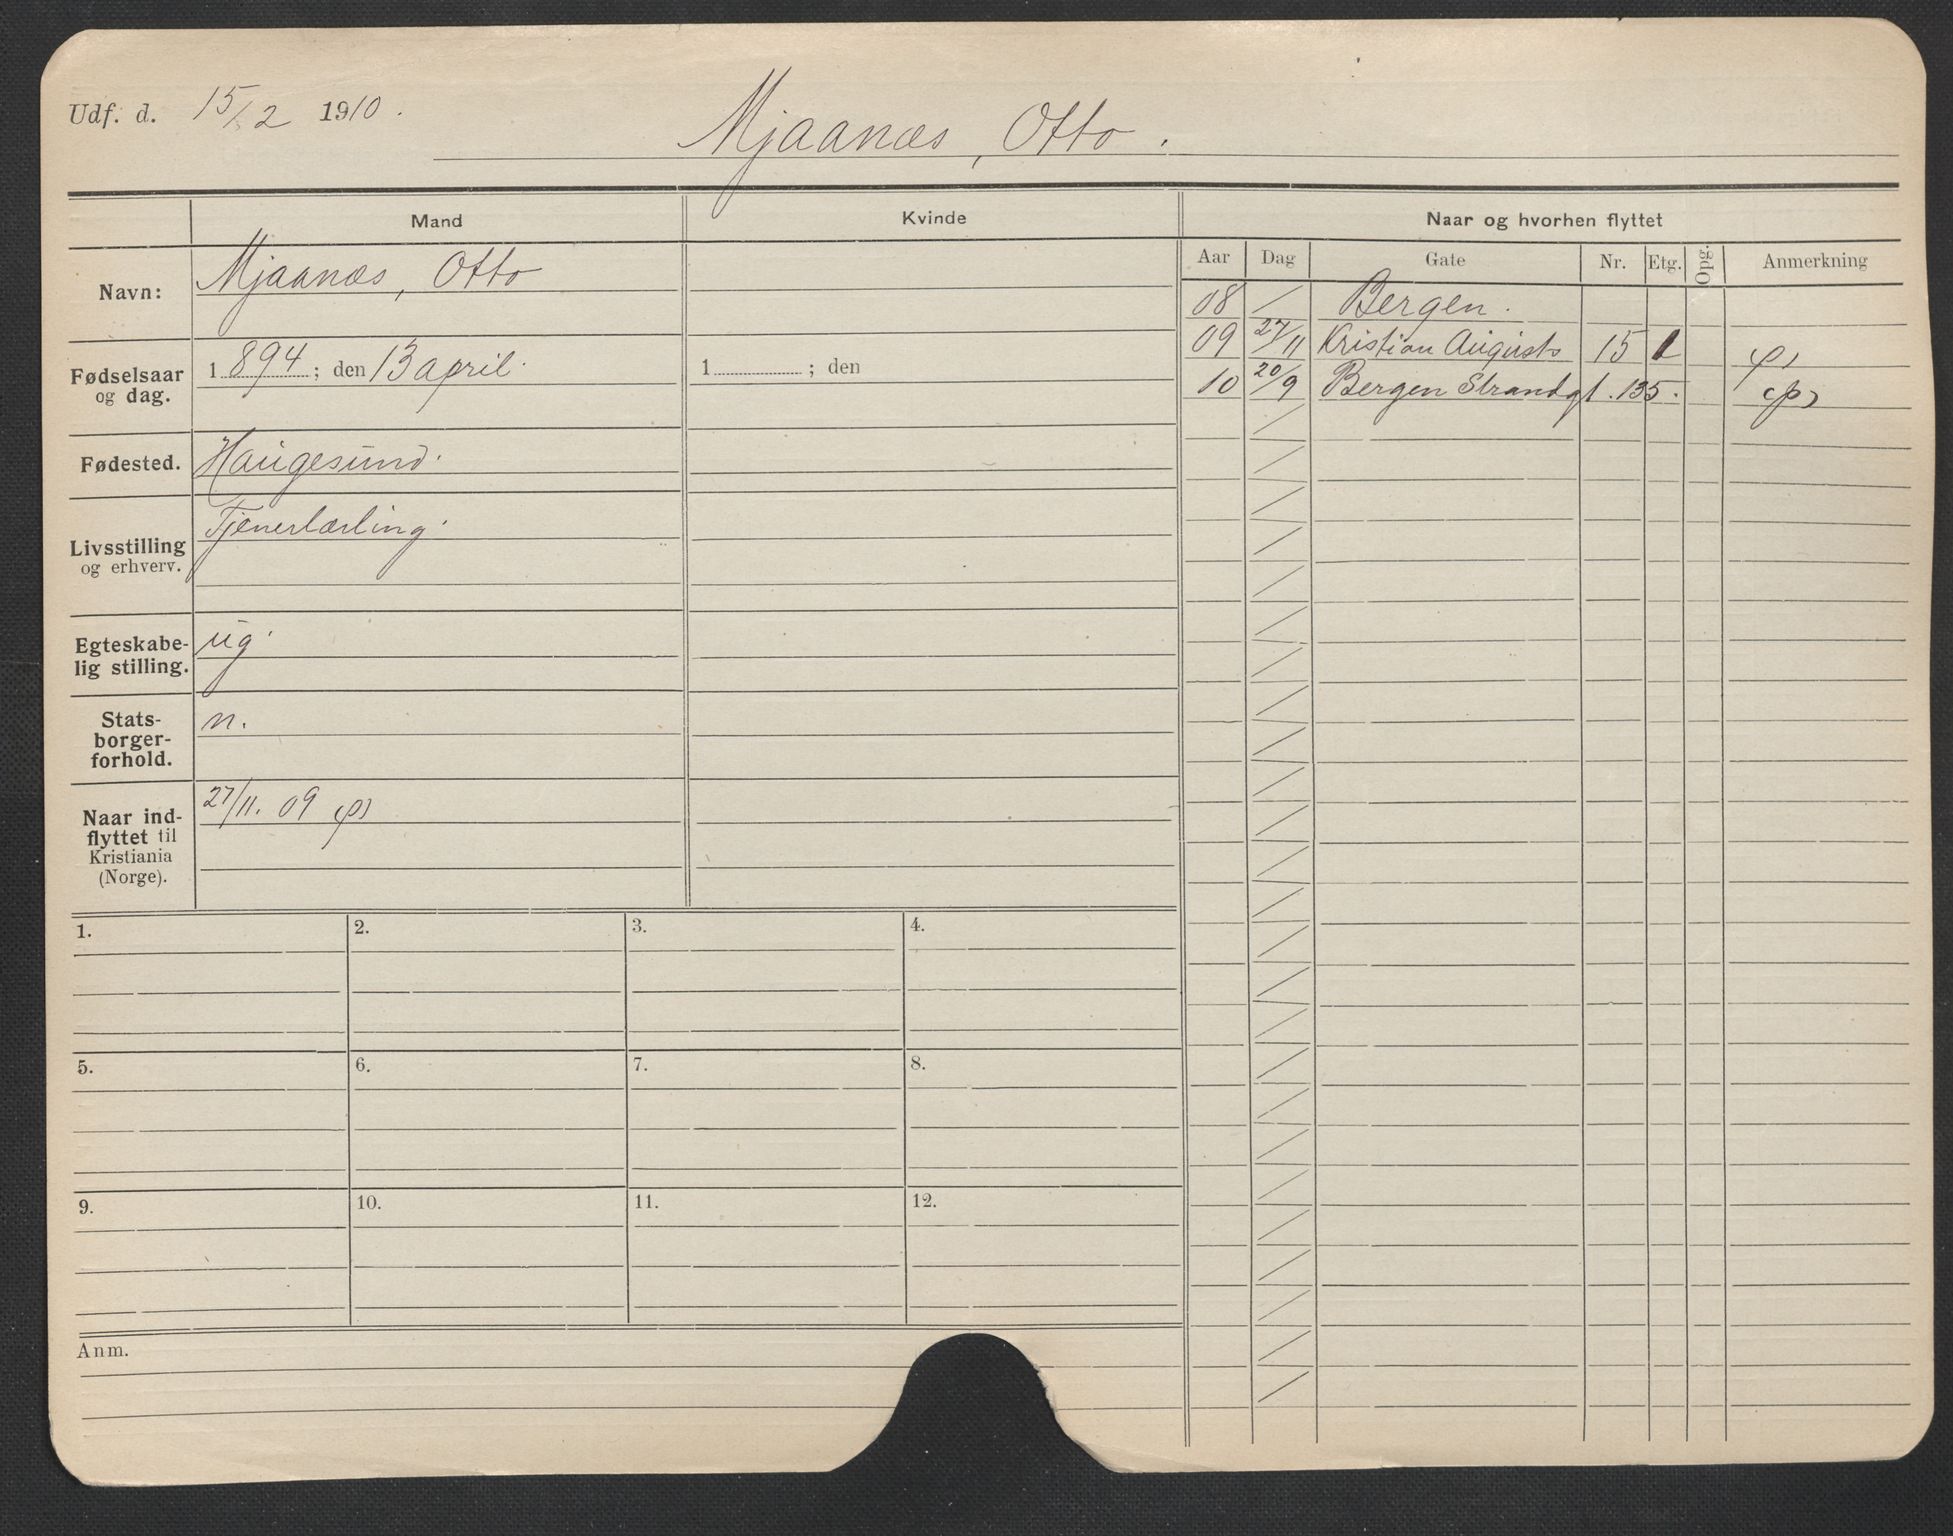 Udf. d. 15/2 1910.
Mjaanæs, Otto.
Mand
Kvinde
Naar og hvorhen flyttet
Aar Dag Gate Nr. Etg. Opg. Anmerkning
Navn: Mjaanæs, Otto
08 Bergen.
09 27/11 Kristian Augusts 15 1 (p)
10 20/9 Bergen Strandgt. 135. (p)
Fødselsaar
og dag.
1894; den 13 april.
1 ; den
Fødested. Haugesund.
Livsstilling
og erhverv.
Tjenerlærling.
Egteskabe-
lig stilling.
ug.
Stats-
borger-
forhold.
n.
Naar ind-
flyttet til
Kristiania
(Norge).
27/11. 09 (p)
1. 2. 3. 4.
5. 6. 7. 8.
9. 10. 11. 12.
Anm.